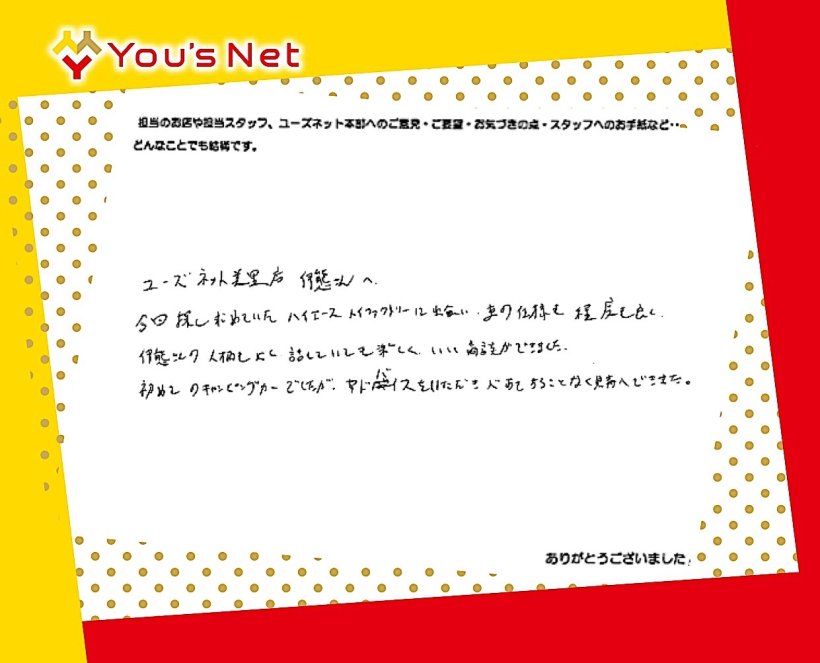 You's Net
担当のお店や担当スタッフ、ユーズネット本部へのご意見・ご要望・お気づきの点・スタッフへのお手紙など…
どんなことでも結構です。
ユーズネット美里店 伊態さんへ
今回探し求めていた ハイエース トイファクトリーに出会い、車の仕様も 程度も良く、
伊態さんの人柄もよく 話していても楽しく、いい商談ができました。
初めてのキャンピングカーでしたが、アドバイスをいただき、 ことなく できました。
ありがとうございました。